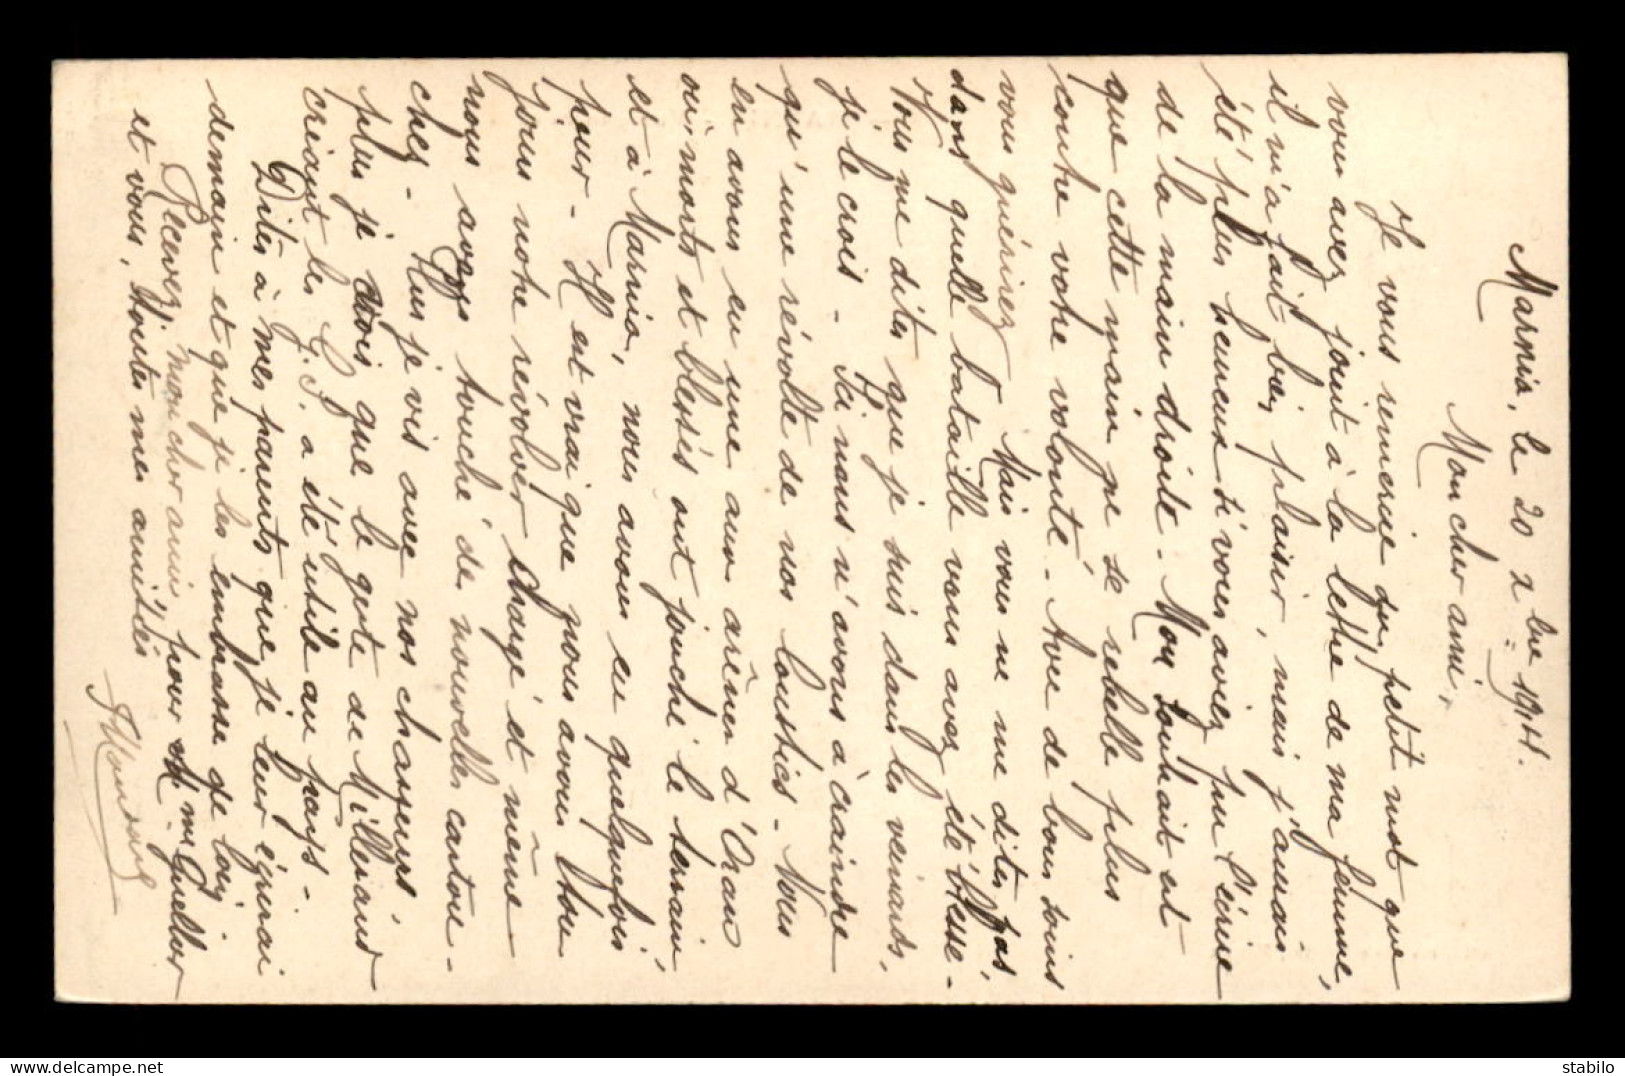 Marnia, le 20 Xbre 1914.
Mon cher ami,
Je vous remercie du petit mot que
vous avez joint à la lettre de ma femme,
il m'a fait bien plaisir, mais j'aurais
été plus heureux si vous aviez pu l'écrire
de la main droite. Mon souhait est
que cette main ne se rebelle plus
contre votre volonté. Avec de bons soins
vous guérirez. Mais vous ne me dites pas
dans quelle bataille vous avez été blessé.
Vous me dites que je suis dans les veinards,
je le crois. Ici nous n'avons à craindre
qu'une révolte de nos loustics. Nous
en avons eu une aux arènes d'Oran
où morts et blessés ont jonché le terrain,
et à Marnia, nous avons eu quelquefois
peur. Il est vrai que nous avons
jours notre révolver chargé et même
nous avons touché de nouvelles cartou-
ches. Plus je vis avec nos chasseurs,
plus je vois que le geste de Millerand
créant les G. F. a été utile au pays.
Dites à mes parents que je leur écrirai
demain et que je les embrasse de loin.
Recevez mon cher ami, pour Mme Gueller
et vous, toutes mes amitiés
stabilo | www.delcampe.net